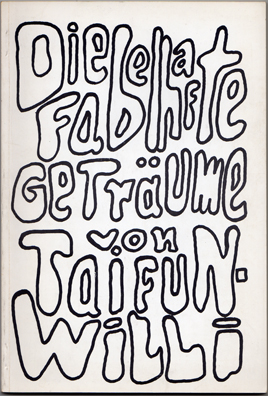 Die
FabelhaFte
GeTräUme
von
TaiFUN-
Willi